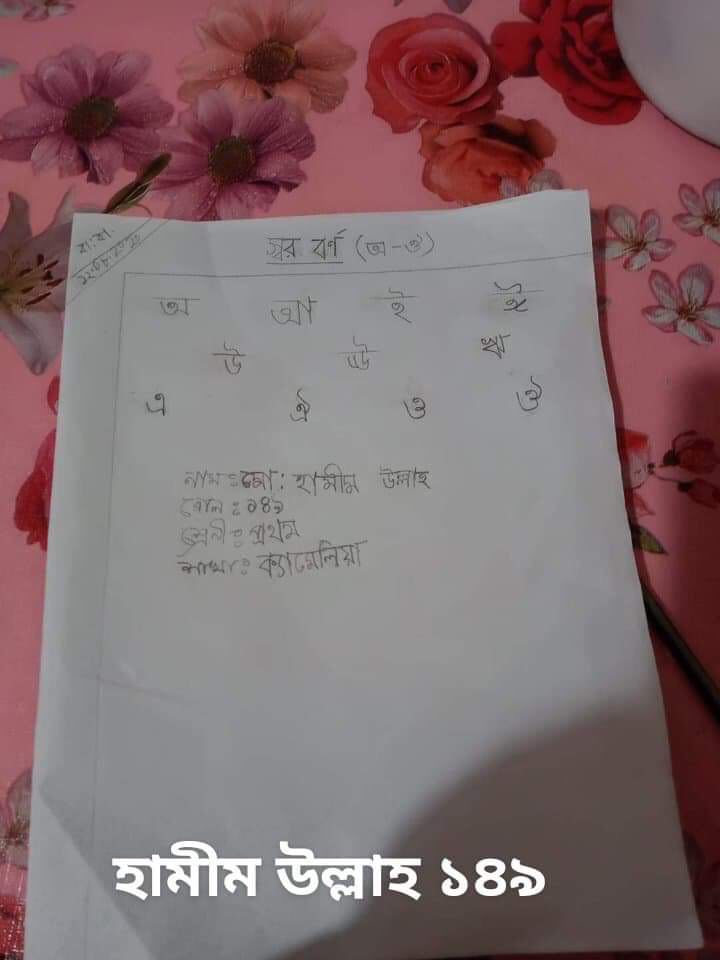 বা:বা.
১২.০৮.২০২০
স্বর বর্ণ (অ-ঔ)
অ আ ই ঈ
উ ঊ ঋ
এ ঐ ও ঔ
নাম : মো: হামীম উল্লাহ
রোল : ১৪৯
শ্রেনী : প্রথম
শাখা : ক্যামেলিয়া
হামীম উল্লাহ ১৪৯